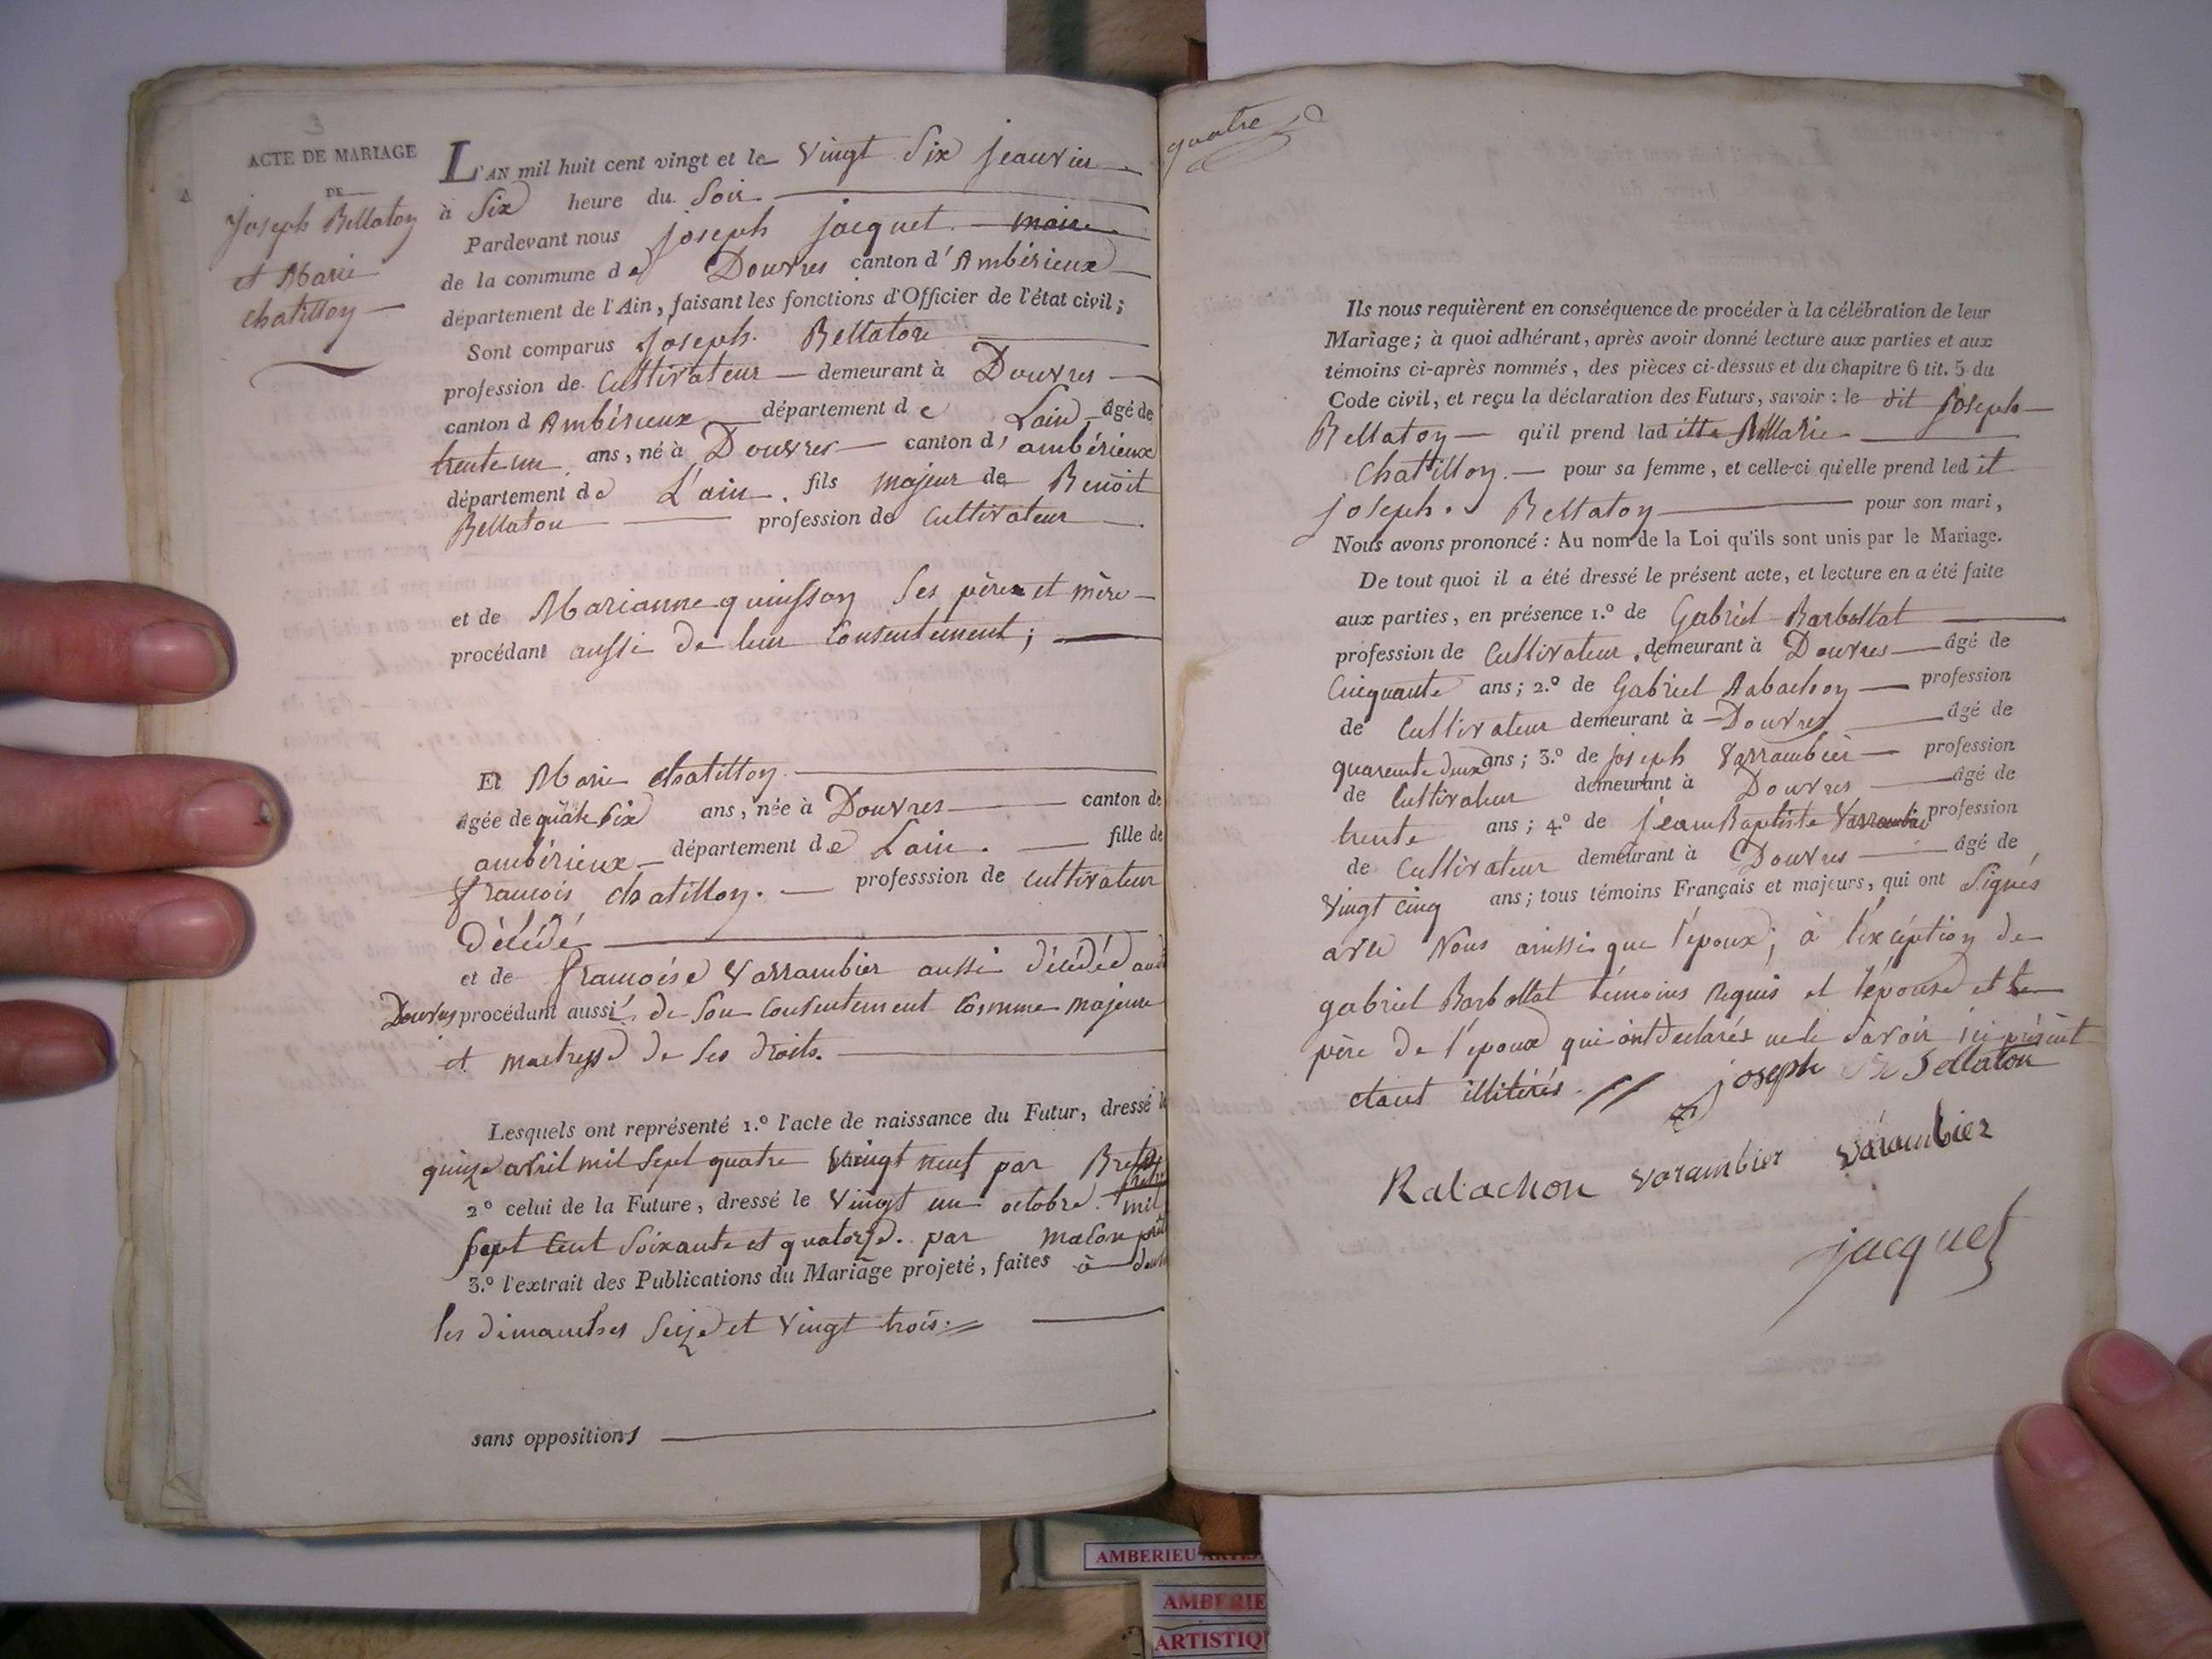 3
ACTE DE MARIAGE
DE
Joseph Bellaton
et Marie
chatillon
L'AN mil huit cent vingt et le vingt Six jeanvier
à Six heure du Soir
Pardevant nous joseph jacquet maire
de la commune de Douvres canton d'Ambérieux
département de l'Ain, faisant les fonctions d'Officier de l'état civil;
Sont comparus joseph Bellaton
profession de Cultivateur demeurant à Douvres
canton d Ambérieux département de Lain âgé de
trente un ans, né à Douvres canton d' ambérieux
département de L'ain. fils majeur de Benoit
Bellaton profession de Cultivateur
et de Marianne quinsson Ses père et mère
procédant aussi de leur Consentement;
Et Marie chatillon
âgée de quâte Six ans, née à Douvres canton de
ambérieux département de Lain. fille de
françois chatillon. professsion de cultivateur
Décédé
et de françoise Varrambier aussi Décédé
Douvres procédant aussi de Son Consentement Comme majeure
et maetresse de Ses droits.
Lesquels ont représenté 1.º l'acte de naissance du Futur, dressé le
quinze avril mil Sept quatre vingt neuf par
2º celui de la Future, dressé le vingt un octobre mil
Sept Cent Soixante et quatorze. par
3.º l'extrait des Publications du Mariage projeté, faites à
les dimanches Seize et Vingt trois.
sans oppositions
quatre
Ils nous requièrent en conséquence de procéder à la célébration de leur
Mariage; à quoi adhérant, après avoir donné lecture aux parties et aux
témoins ci-après nommés, des pièces ci-dessus et du chapitre 6 tit. 5 du
Code civil, et reçu la déclaration des Futurs, savoir: le dit joseph
Bellaton qu'il prend laditte Marie
Chatillon. pour sa femme, et celle-ci qu'elle prend ledit
joseph. Bellaton pour son mari,
Nous avons prononcé: Au nom de la Loi qu'ils sont unis par le Mariage.
De tout quoi il a été dressé le présent acte, et lecture en a été faite
aux parties, en présence 1.º de Gabriel Barbollat
profession de Cultivateur, demeurant à Douvres âgé de
Cinquante ans; 2.º de Gabriel Rabachon profession
de Cultivateur demeurant à Douvres âgé de
quarente deux ans; 3.º de joseph Varrambier profession
de Cultivateur demeurant à Douvres âgé de
trente ans; 4.º de jeam Baptiste Varrambier profession
de Cultivateur demeurant à Douvres âgé de
Vingt cinq ans; tous témoins Français et majeurs, qui ont Signés
avec Nous ainssi que l'époux; à l'exception de
gabriel Barbollat témoins Requis et l'épouse et le
père de l'époux qui ont déclarés ne le Savoir ici présent
étant illitérés.
joseph Bellaton
Rabachon varambier varambier
jacquet
AMBERIEU ARTIS
AMBERIE
ARTISTIQ